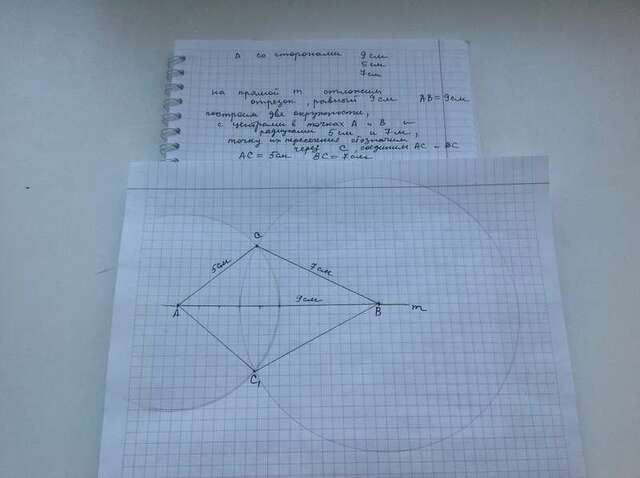 Δ со сторонами 9 см
5 см
7 см
на прямой m отложим
отрезок, равный 9 см AB = 9 см
построим две окружности,
с центрами в точках A и B и
радиусами 5 см и 7 см,
точку их пересечения обозначим
через C соединим AC и BC
AC = 5 см BC = 7 см
C
5 см
7 см
9 см
A
B
m
C₁